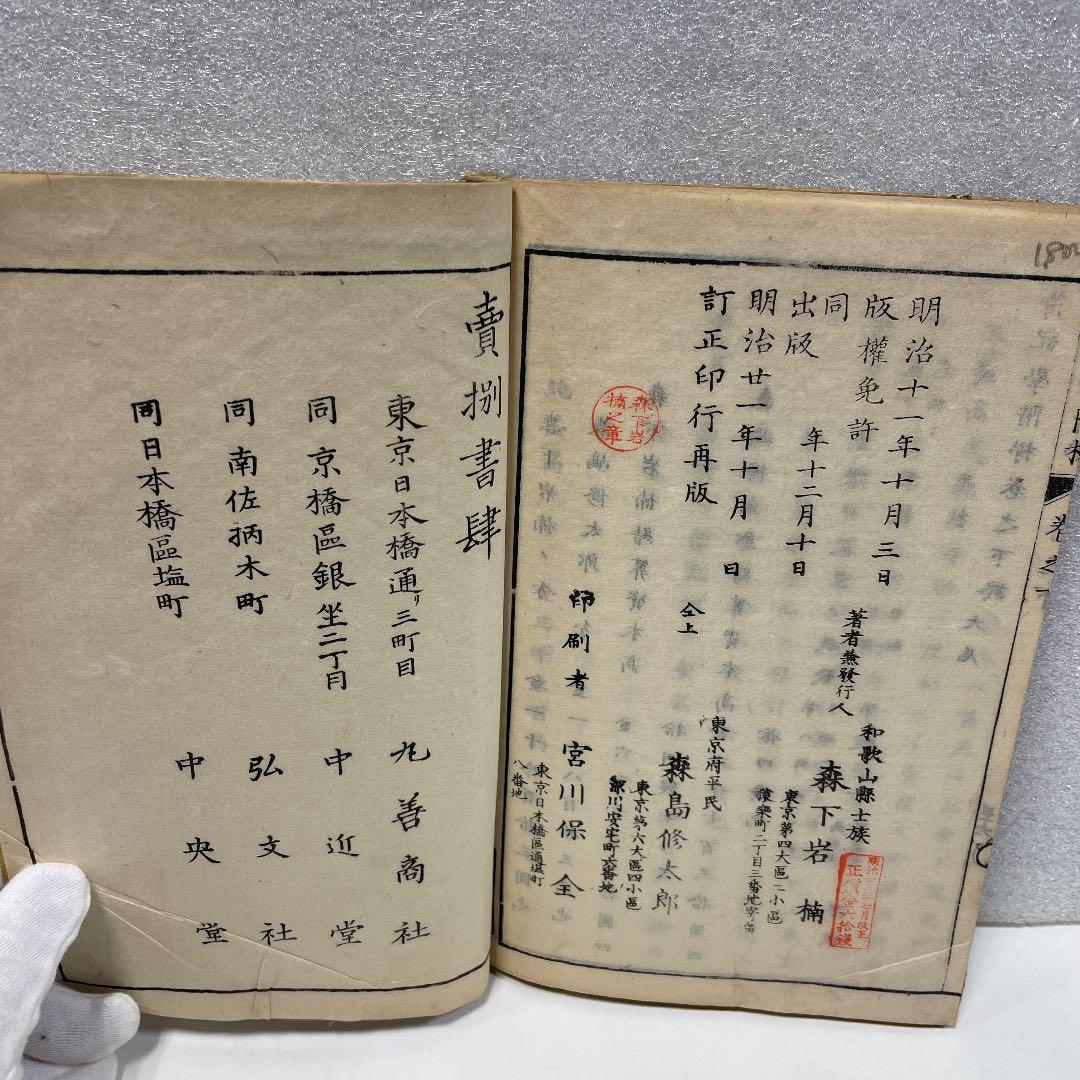 明治十一年十月三日
版權免許
同　年十二月十日
出版
明治廿一年十月　日
訂正印行再版
著者兼發行人
和歌山縣士族
森下岩楠
東京第四大區二小區
猿樂町二丁目三番地寄留
仝上
東京府平民
森島修太郎
東京第六大區四小區
深川安宅町六番地
印刷者
宮川保全
東京日本橋區通塩町
八番地
森下岩
楠之章
正價金六拾錢
180
賣捌書肆
東京日本橋通リ三町目　丸善商社
同京橋區銀坐二丁目　中近堂
同南佐柄木町　弘文社
同日本橋區塩町　中央堂